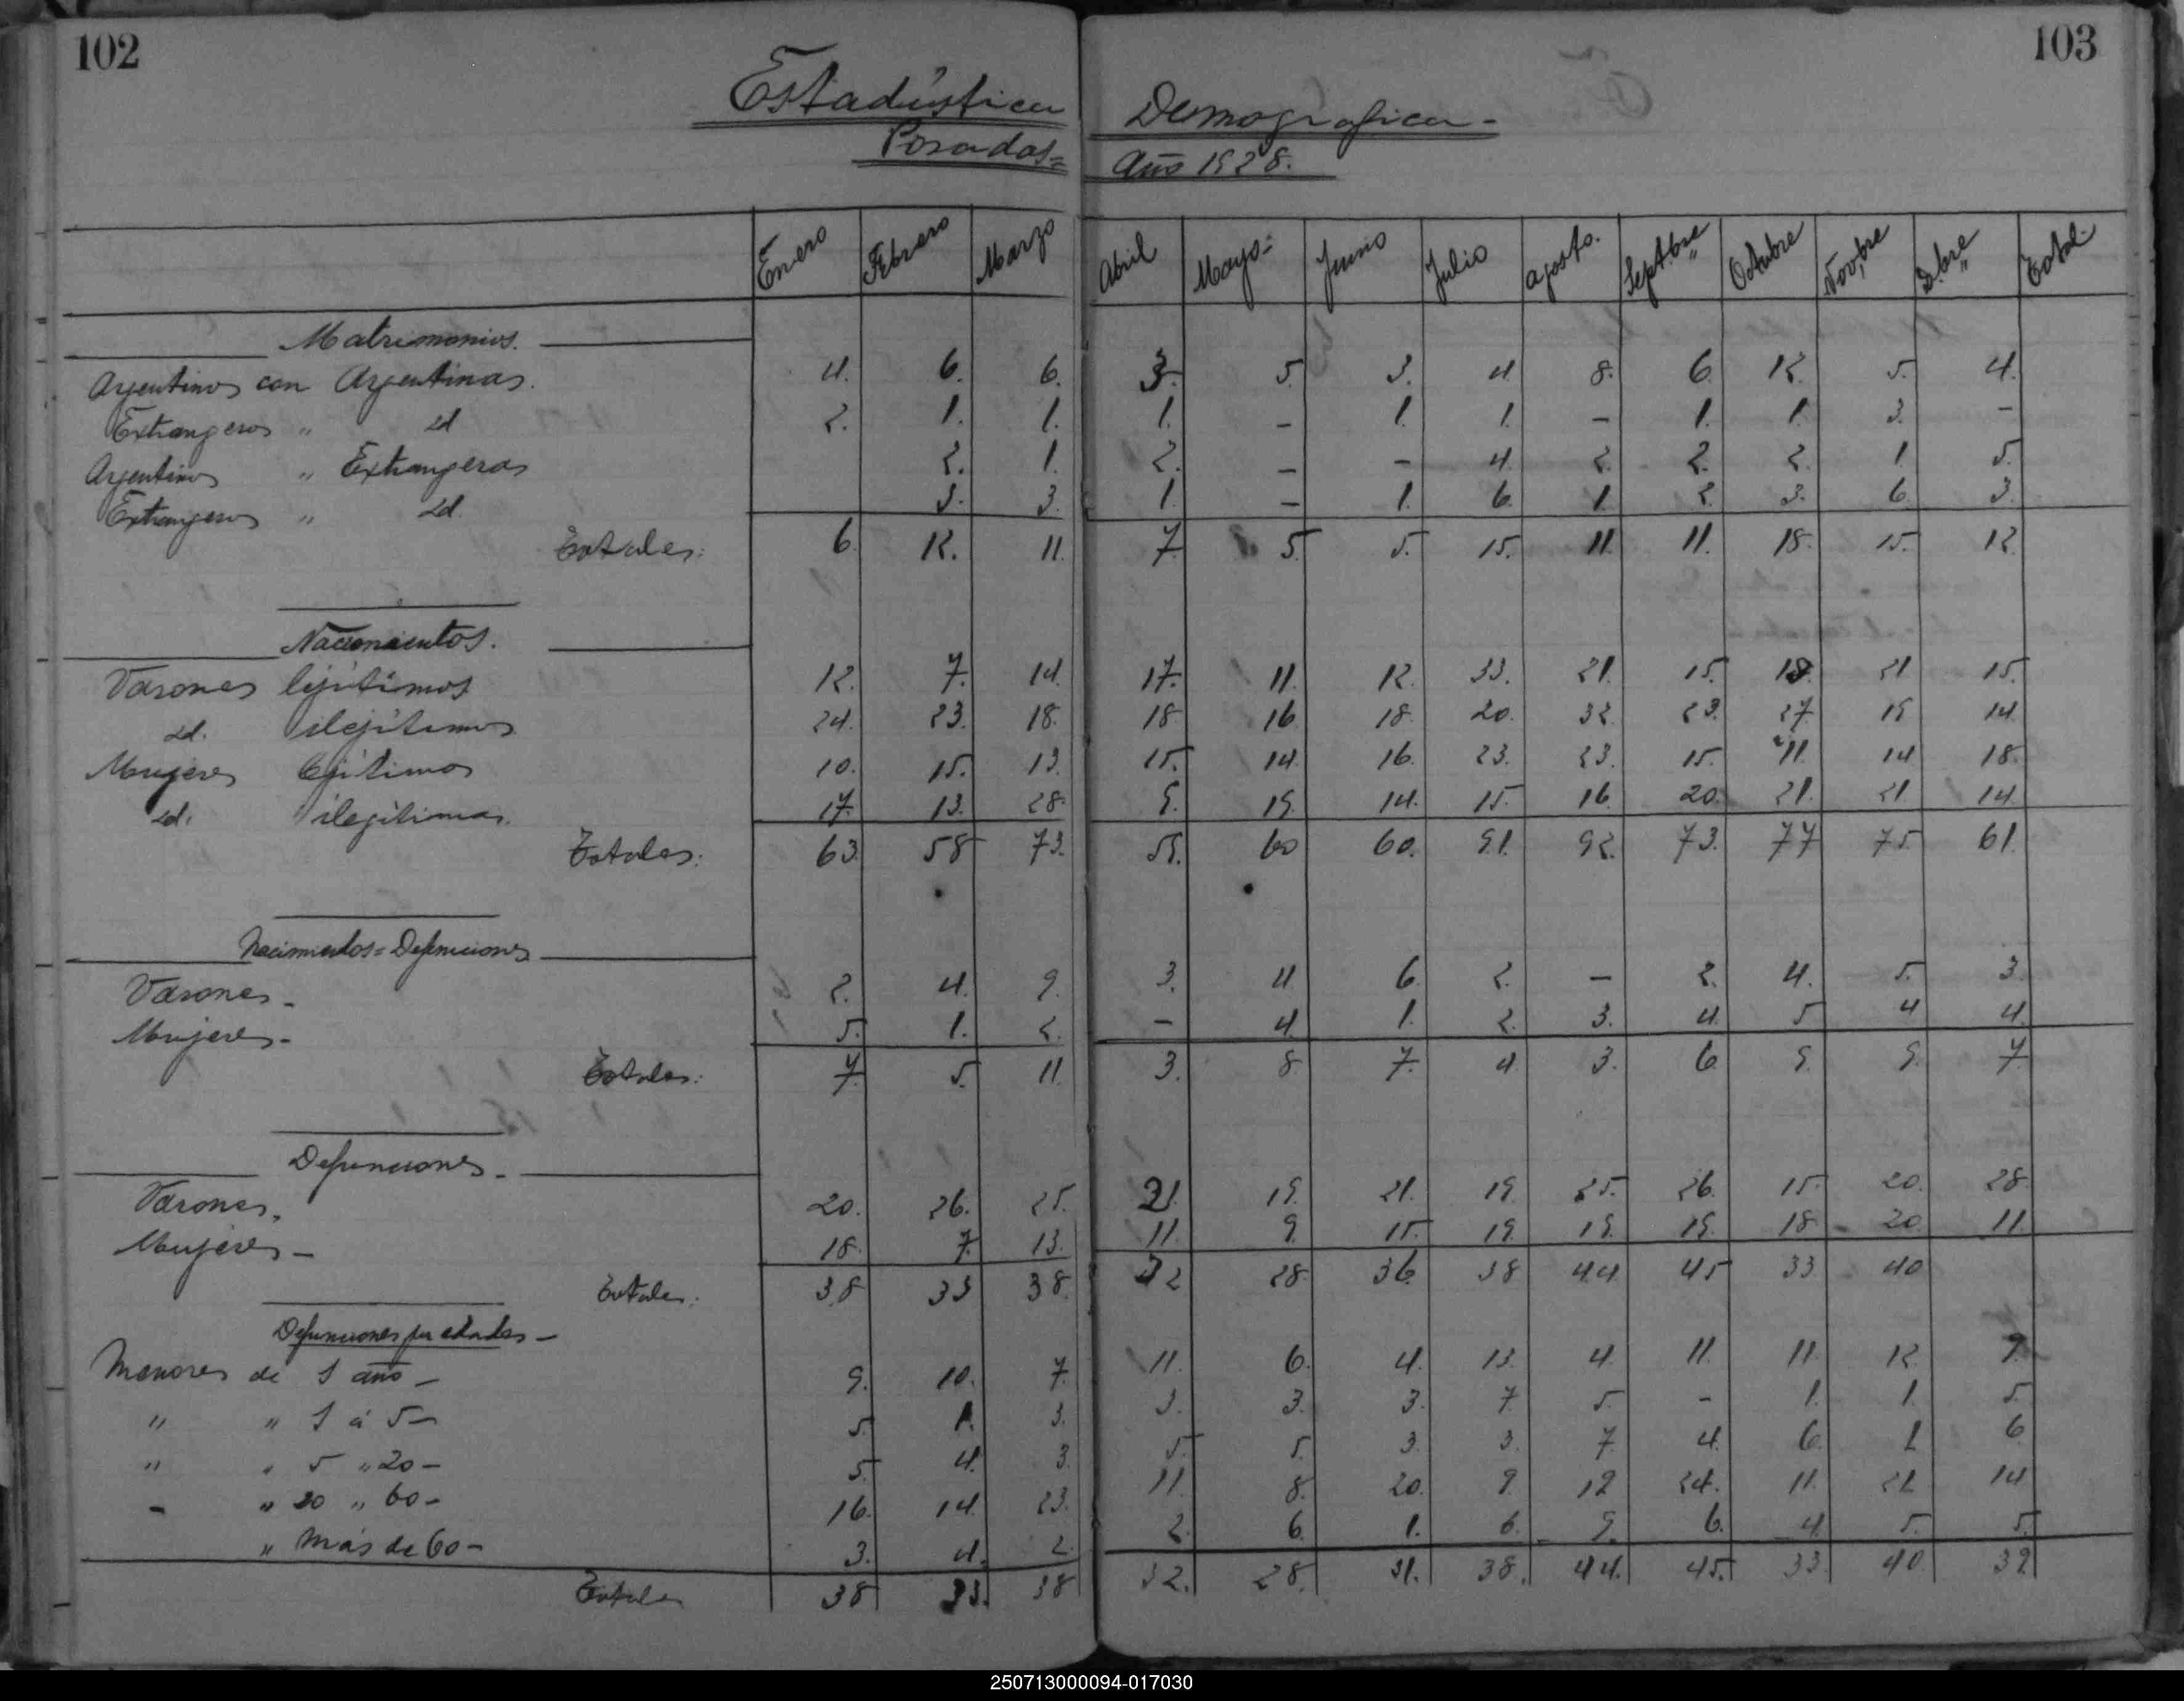 102
103
Estadística Demografica-
Posadas= Año 1928.
Enero Febrero Marzo Abril Mayo= Junio Julio agosto. Septbre Octubre Novbre Dbre Total.
Matrimonios.
Argentinos con Argentinas. 4. 6. 6. 3. 5. 3. 4. 8. 6. 12. 5. 4.
Extrangeros " id 2. 1. 1. 1. - 1. 1. - 1. 1. 3. -
Argentinos " Extrangeras 2. 1. 2. - - 4. 2. 2. 2. 1. 5.
Extrangeros " Id. 3. 3. 1. - 1. 6. 1 2. 3. 6. 3.
Totales: 6. 12. 11. 7. 5. 5. 15. 11. 11. 18. 15. 12.
Nacimientos.
Varones lejítimos 12. 7. 14. 17. 11. 12. 33. 21. 15. 18. 21 15.
id. ilejítimos 24. 23. 18. 18 16 18. 20. 32. 23. 27 19 14.
Mujeres lejítimas 10. 15. 13. 15. 14. 16. 23. 23. 15. 11. 14 18.
id. ilegítimas. 17. 13. 28. 9. 19. 14. 15. 16. 20. 21. 21. 14.
Totales: 63. 58 73. 59. 60 60. 91. 92. 73. 77 75 61.
Nacimientos=Defunciones
Varones- 2. 4. 9. 3. 4 6. 2. - 2. 4. 5. 3.
Mujeres- 5. 1. 2. - 4. 1. 2. 3. 4. 5 4 4.
Totales: 7. 5. 11. 3. 8 7. 4 3. 6. 9. 9. 7.
Defunciones-
Varones. 20. 26. 25. 21. 19. 21. 19. 25. 26. 15. 20. 28.
Mujeres- 18. 7. 13. 11. 9. 15. 19. 19. 19. 18 20. 11.
Totales: 38 33 38. 32 28. 36. 38 44 45 33 40
Defunciones por edades-
Menores de 1 año- 9. 10. 7. 11. 6. 4. 13. 4. 11. 11. 12. 9.
" " 1 á 5- 5. 1. 3. 3. 3. 3. 7 5. - 1. 1. 5.
" " 5 " 20- 5. 4. 3. 5. 5. 3. 3. 7. 4. 6. 1 6.
- " 20 " 60- 16. 14. 23. 11. 8. 20. 9. 19 24. 11. 21 14
" Más de 60- 3. 4. 2. 2. 6. 1. 6. 9. 6. 4. 5. 5.
Totales 38 33. 38 32. 28. 31. 38. 44. 45. 33. 40. 39
250713000094-017030